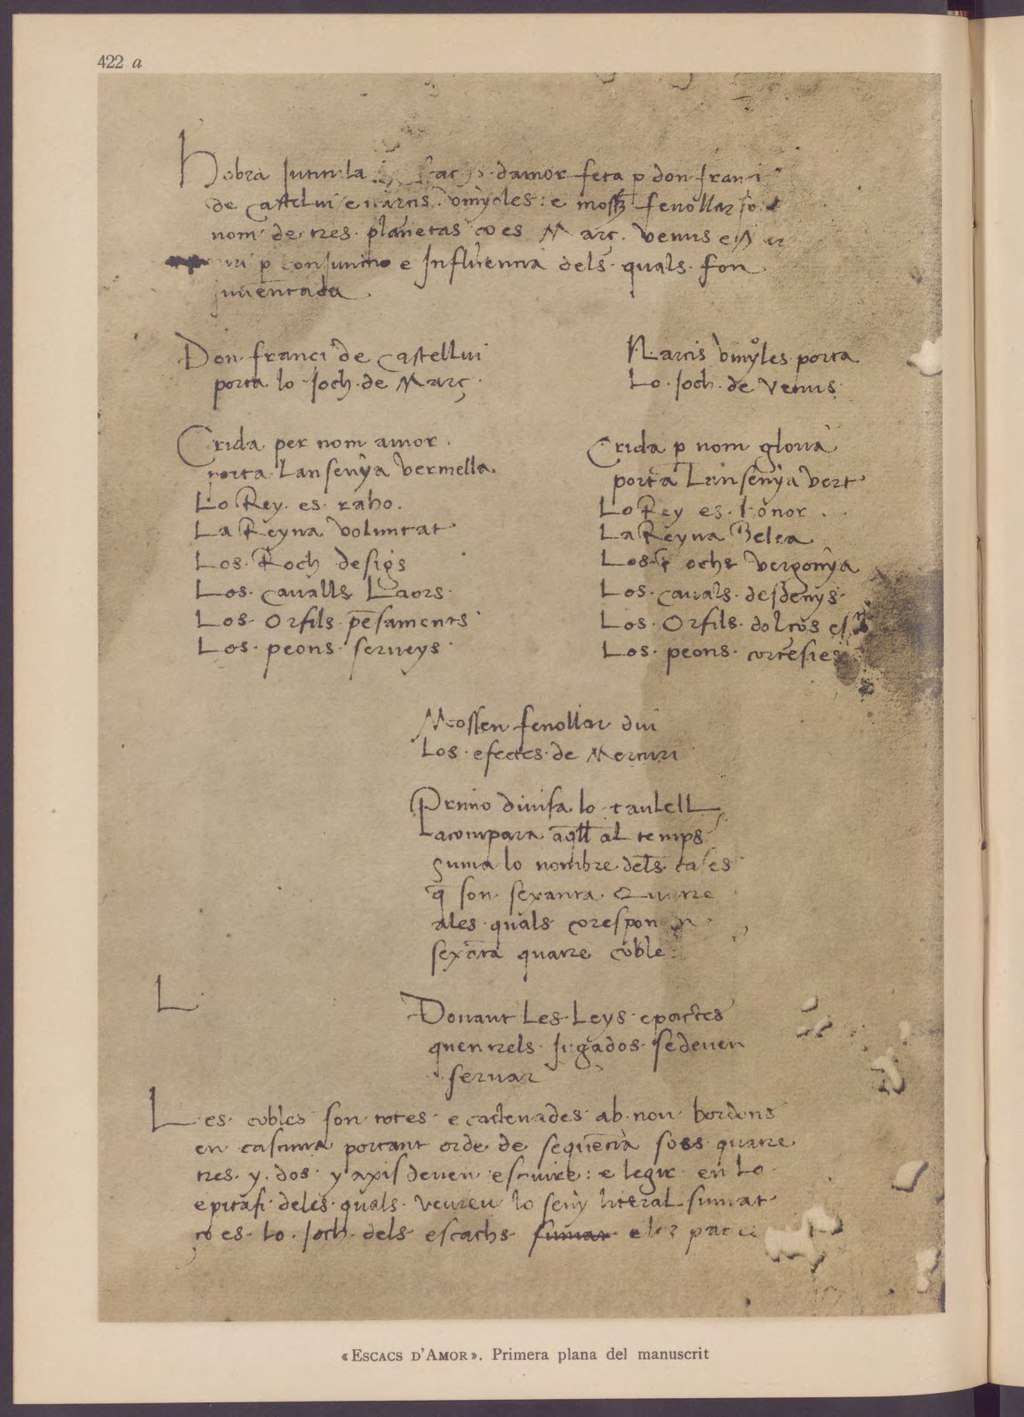 422 a
hobra Intitulada Scachs damor feta p don franci
de Castelui e narcis vinyoles : e mossē fenollar so
nom de tres planetas ço es Març . Venus e Mer
curi p conjunctio e Influencia dels quals fon
jnuentada .
Don franci de Castellui
porta lo Joch de Març .
Crida per nom amor .
porta Lansenya Vermella .
Lo Rey es raho .
La Reyna Voluntat
Los Roch desigs
Los caualls Laors .
Los Orfils pēsaments
Los peons serueys
Narcis vinyoles porta
Lo Joch de Venus
Crida p nom gloria
porta Lansenya Vert
Lo Rey es honor .
La Reyna Belea
Los Rochs Vergonya
Los cauals desdenys
Los Orfils dolços es
Los peons cortesies
Mossen fenollar diu
Los efectes de Mercuri
Primo diuisa lo taulell
acompara aq̄ll al temps
suma lo nombre dels cases
q̄ son sexanta Quatre
ales quals coresponen
sexāta quatre coble
L
Donant Les Leys e pactes
quentrels Jugados se deuen
seruar
Les cobles son totes e cadenades ab nou bordons
en cascuna portant orde de sequēcia soes quatre
tres y dos y axis deuen escuire : e legir en Lo
epitafi deles quals veureu lo seny literal
ço es Lo Joch dels escachs e los pac
«Escacs d'Amor». Primera plana del manuscrit